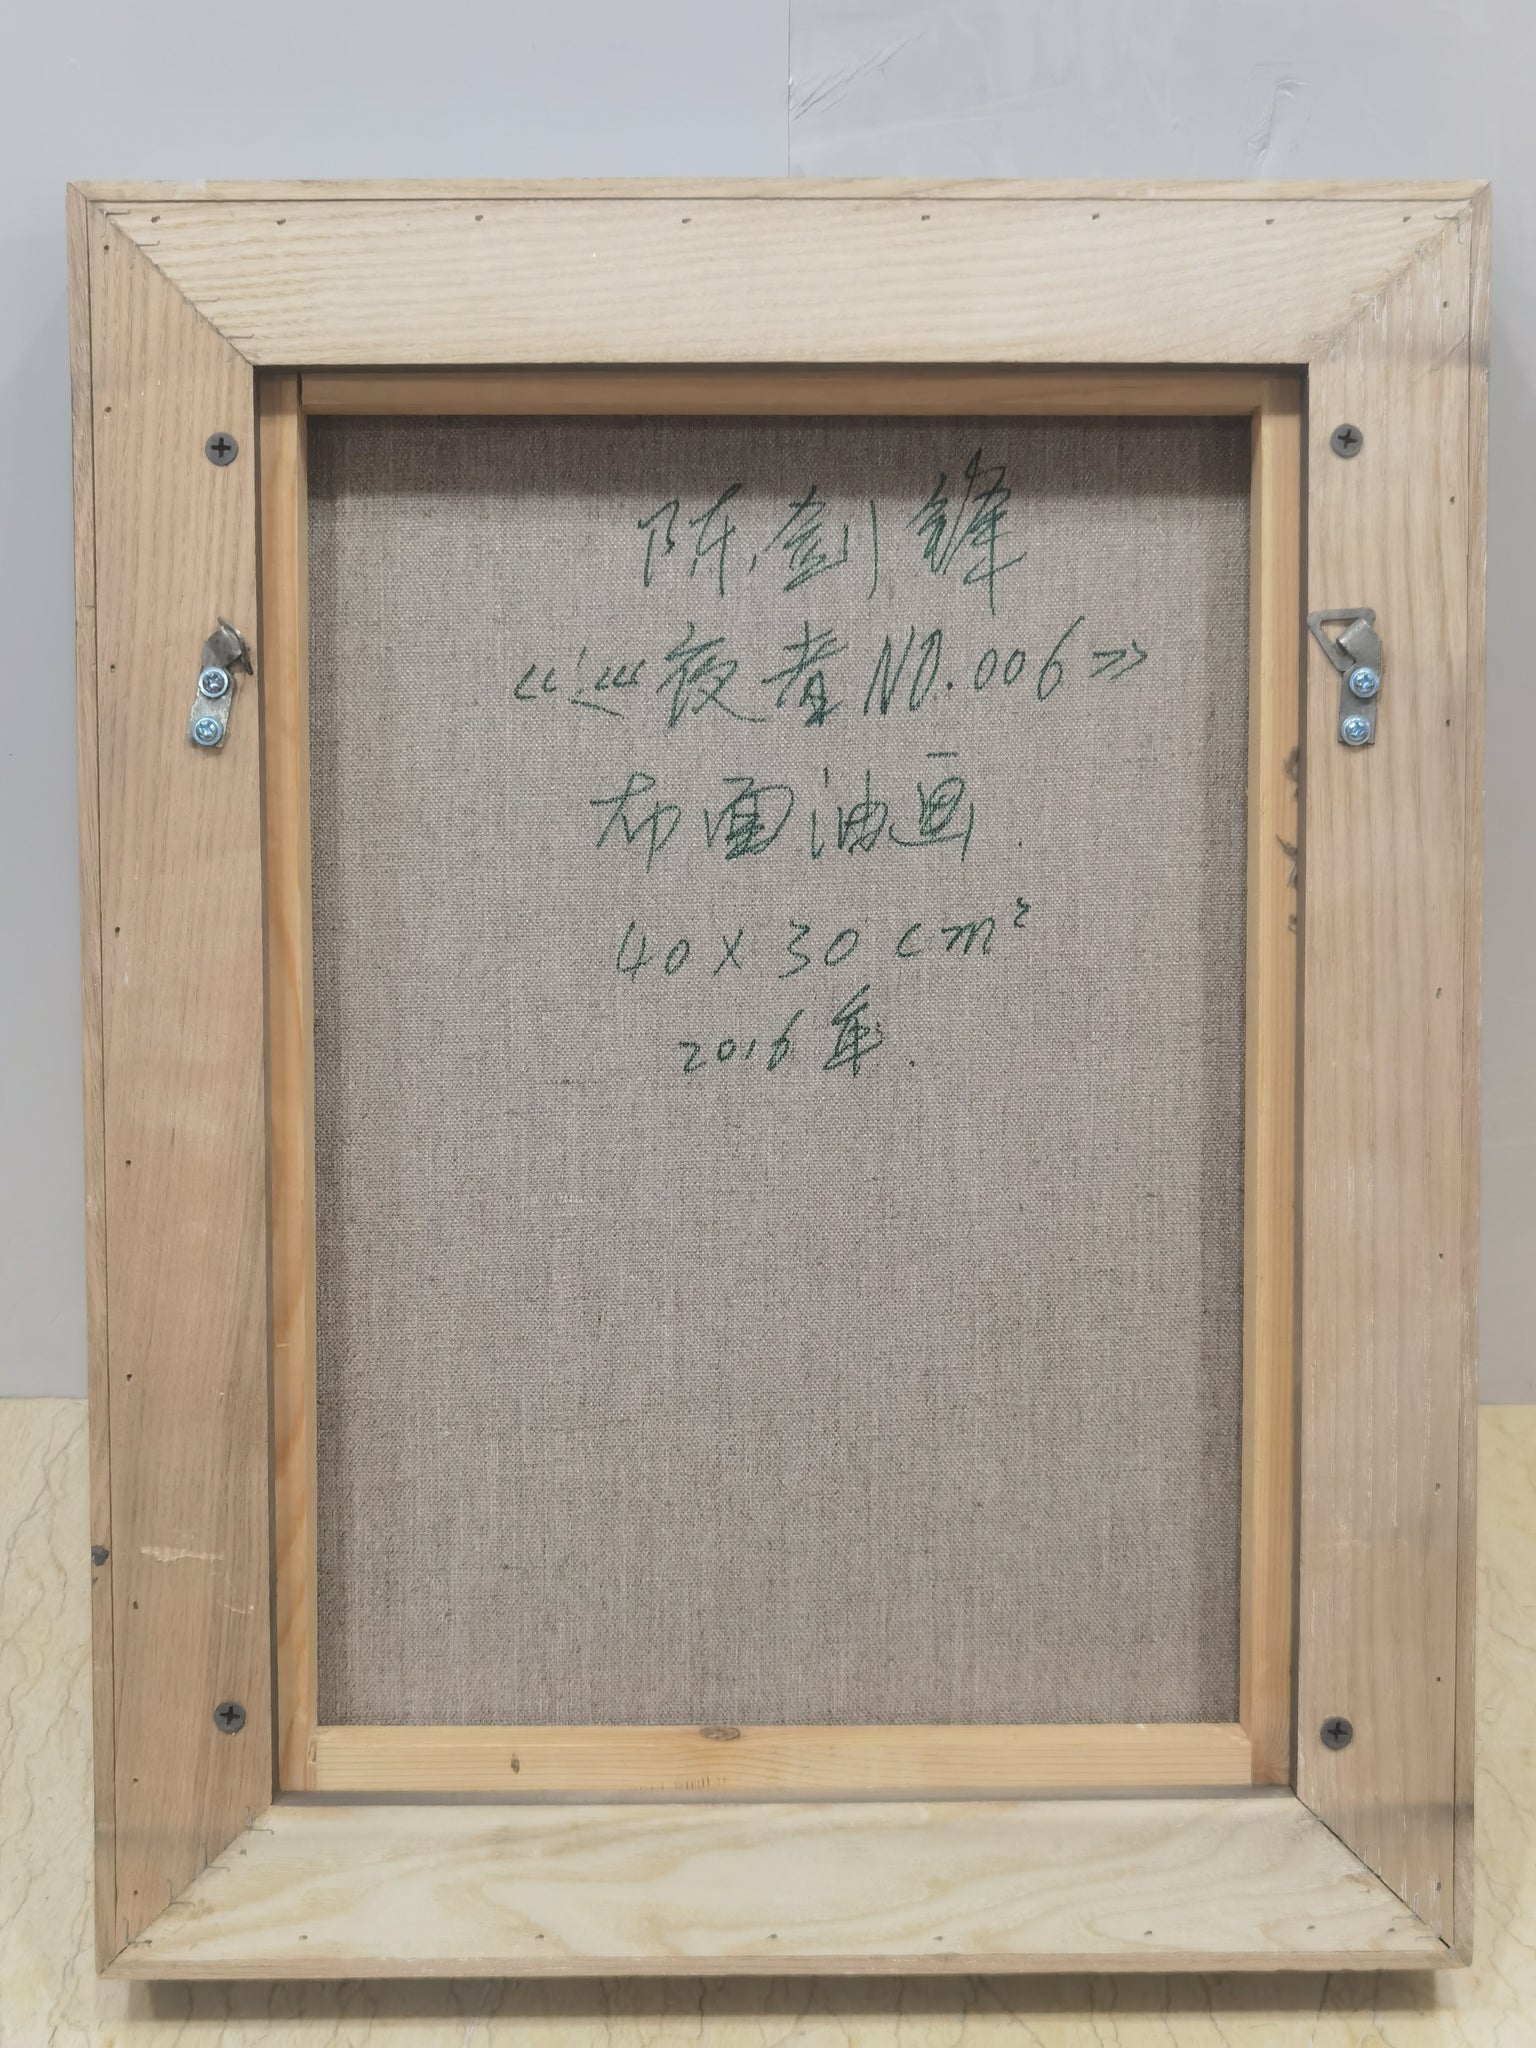 陈剑锋
《巡夜者NO.006》
布面油画.
40x30cm²
2016年.